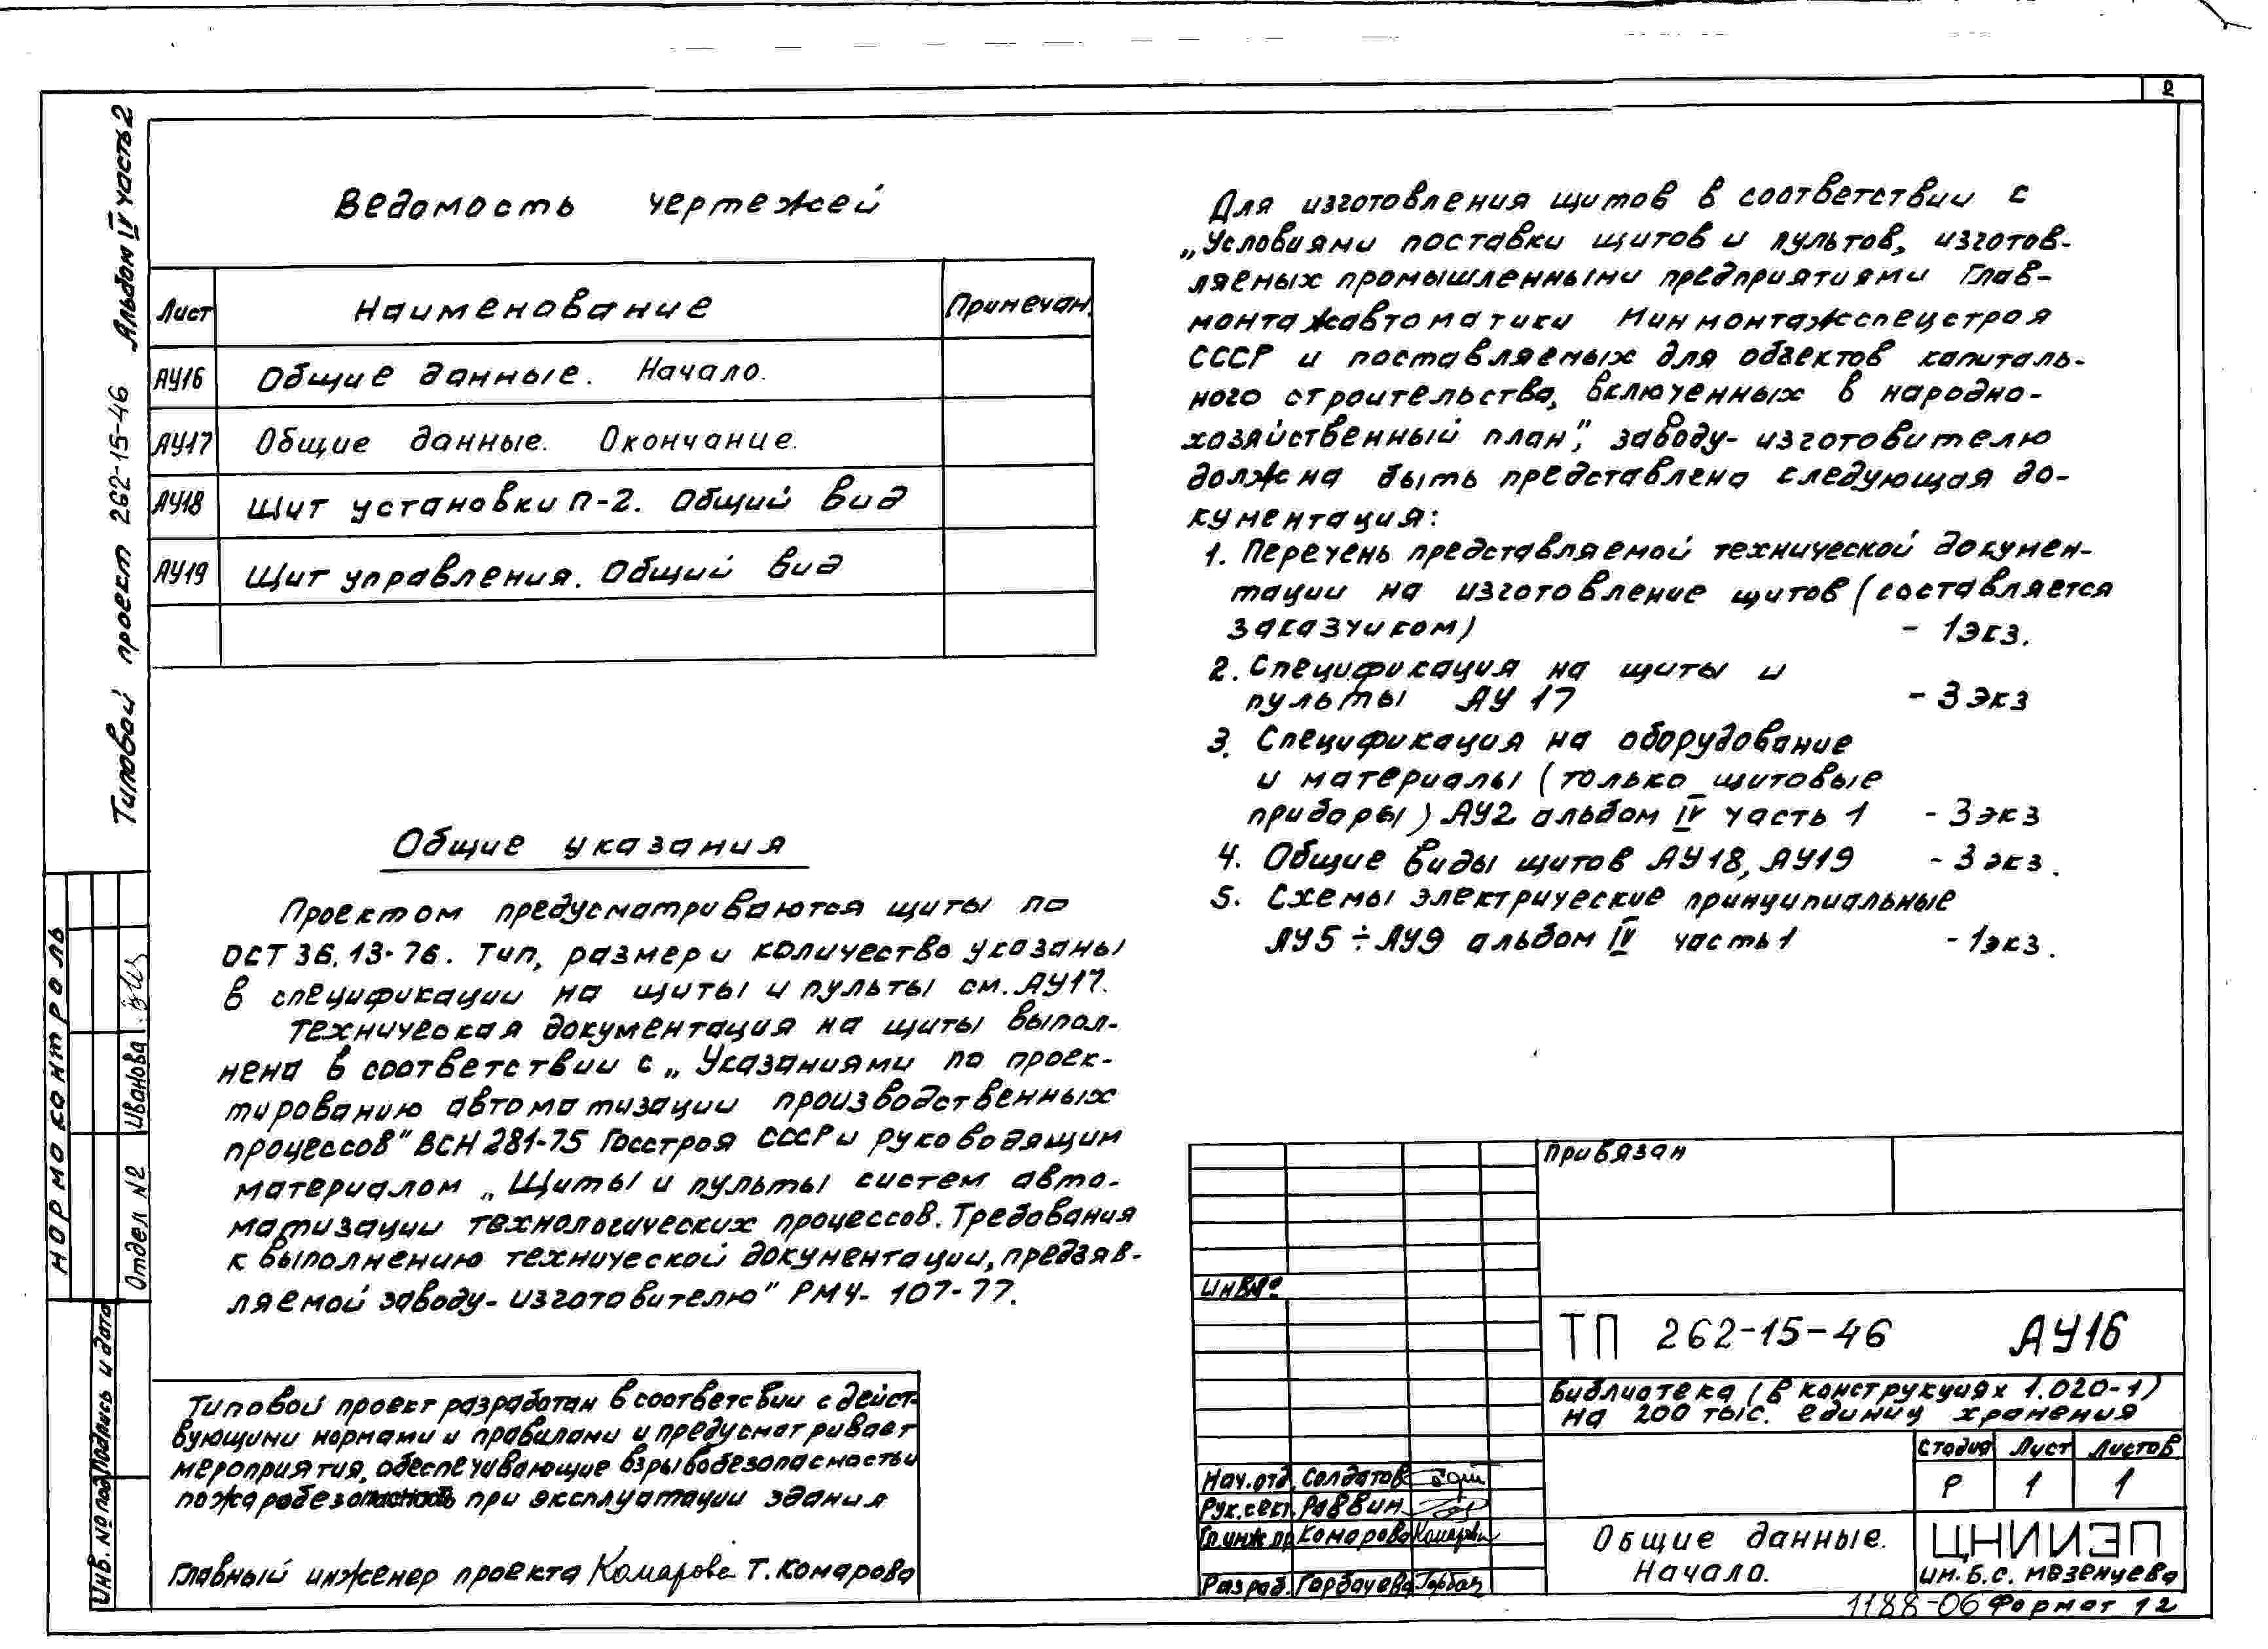 2
Типовой проект 262-15-46 Альбом IV часть 2
Ведомость чертежей
Лист Наименование Примечан.
АУ16 Общие данные. Начало.
АУ17 Общие данные. Окончание.
АУ18 Щит установки П-2. Общий вид
АУ19 Щит управления. Общий вид
Общие указания
Проектом предусматриваются щиты по
ОСТ 36.13-76. Тип, размер и количество указаны
в спецификации на щиты и пульты см. АУ17.
Техническая документация на щиты выпол-
нена в соответствии с „Указаниями по проек-
тированию автоматизации производственных
процессов" ВСН 281-75 Госстроя СССР и руководящим
материалом „Щиты и пульты систем авто-
матизации технологических процессов. Требования
к выполнению технической документации, предъяв-
ляемой заводу-изготовителю" РМ4-107-77.
Типовой проект разработан в соответсвии с дейст-
вующими нормами и правилами и предусматривает
мероприятия, обеспечивающие взрывобезопасность и
пожаробезопасность при эксплуатации здания
Главный инженер проекта Комарова Т. Комарова
Для изготовления щитов в соответствии с
„Условиями поставки щитов и пультов, изготов-
ляемых промышленными предприятиями Глав-
монтажавтоматики Минмонтажспецстроя
СССР и поставляемых для объектов капиталь-
ного строительства, включенных в народно-
хозяйственный план", заводу-изготовителю
должна быть представлена следующая до-
кументация:
1. Перечень представляемой технической докумен-
тации на изготовление щитов (составляется
заказчиком) - 1экз.
2. Спецификация на щиты и
пульты АУ 17 - 3 экз
3. Спецификация на оборудование
и материалы (только щитовые
приборы) АУ2 альбом IV часть 1 - 3экз
4. Общие виды щитов АУ18, АУ19 - 3 экз.
5. Схемы электрические принципиальные
АУ5÷АУ9 альбом IV часть 1 - 1экз.
Нормоконтроль
Отдел №2 Иванова
Инв. № подл Подпись и дата
Привязан
Инв №
ТП 262-15-46 АУ16
Библиотека (в конструкциях 1.020-1)
на 200 тыс. единиц хранения
Стадия Лист Листов
Р 1 1
Нач.отд. Солдатов
Рук.сект. Раввин
Гл.инж.пр Комарова Комарова
Разраб. Горбачева Горбач
Общие данные.
Начало.
ЦНИИЭП
им. Б.С. Мезенцева
1188-06 Формат 12